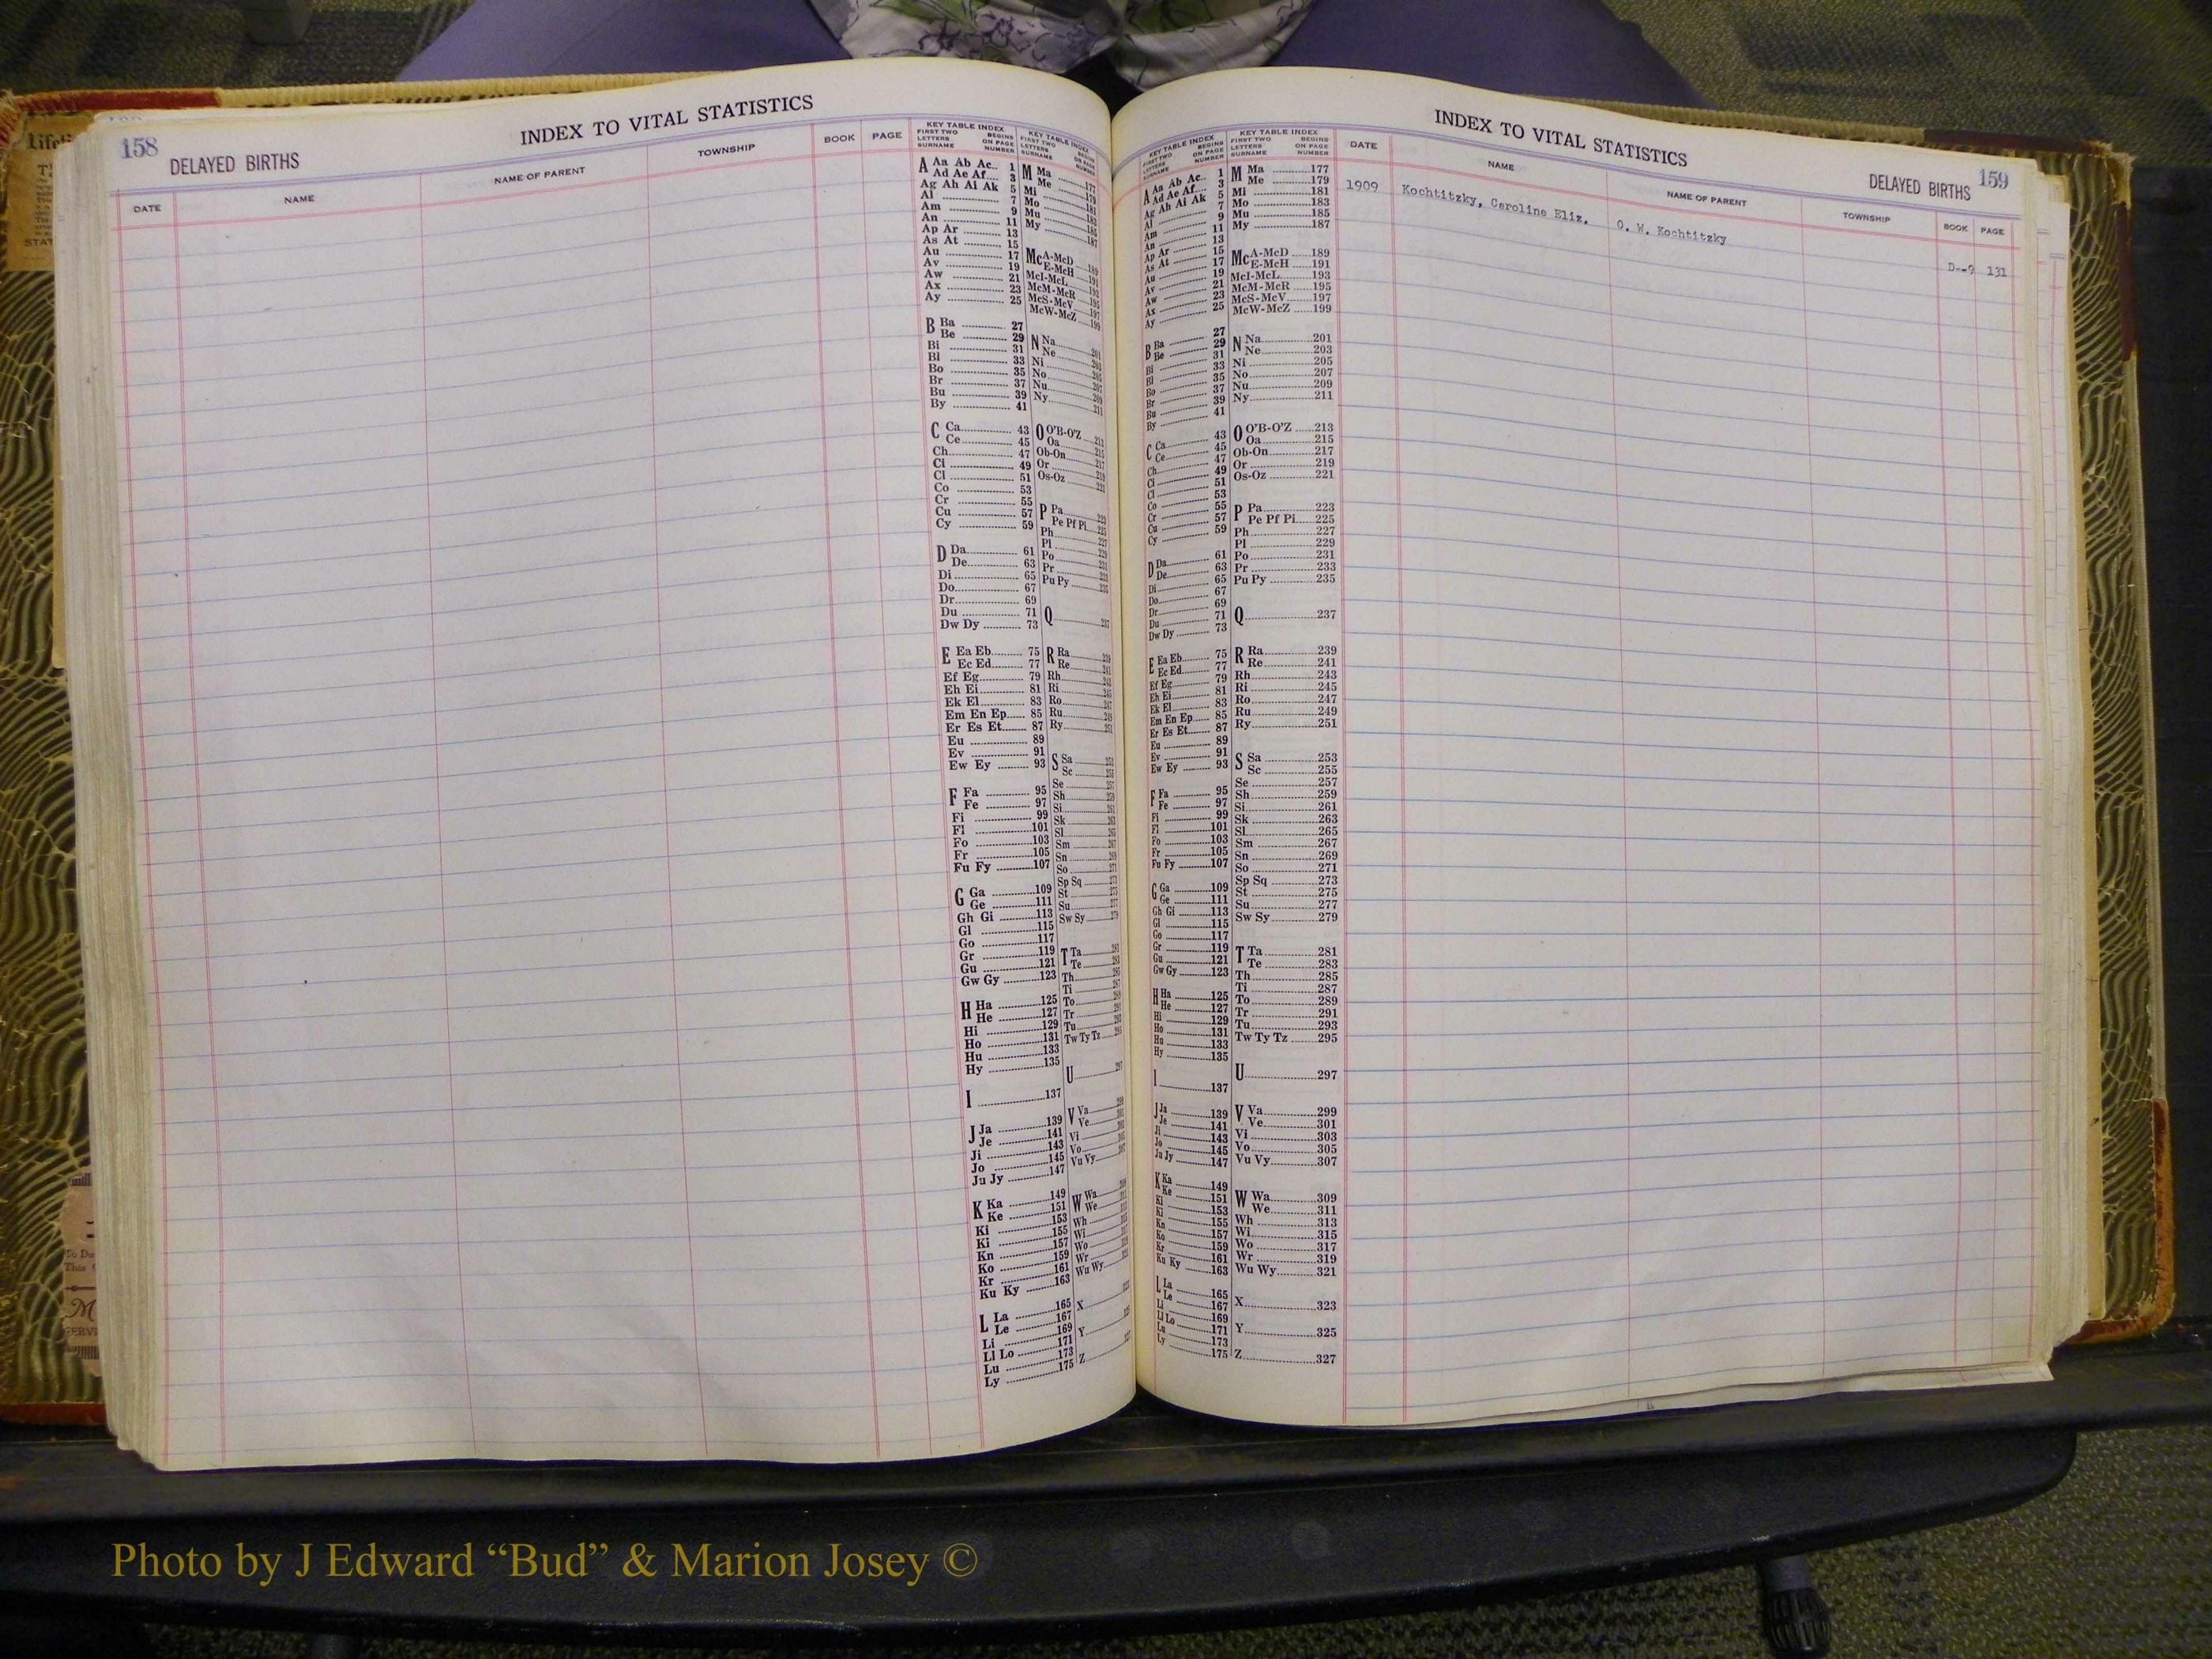 158
DELAYED BIRTHS
INDEX TO VITAL STATISTICS
DATE NAME NAME OF PARENT TOWNSHIP BOOK PAGE
KEY TABLE INDEX
FIRST TWO LETTERS SURNAME BEGINS ON PAGE NUMBER
A Aa Ab Ac 1
Ad Ae Af 3
Ag Ah Ai Ak 5
Al 7
Am 9
An 11
Ap Ar 13
As At 15
Au 17
Av 19
Aw 21
Ax 23
Ay 25
B Ba 27
Be 29
Bi 31
Bl 33
Bo 35
Br 37
Bu 39
By 41
C Ca 43
Ce 45
Ch 47
Ci 49
Cl 51
Co 53
Cr 55
Cu 57
Cy 59
D Da 61
De 63
Di 65
Do 67
Dr 69
Du 71
Dw Dy 73
E Ea Eb 75
Ec Ed 77
Ef Eg 79
Eh Ei 81
Ek El 83
Em En Ep 85
Er Es Et 87
Eu 89
Ev 91
Ew Ey 93
F Fa 95
Fe 97
Fi 99
Fl 101
Fo 103
Fr 105
Fu Fy 107
G Ga 109
Ge 111
Gh Gi 113
Gl 115
Go 117
Gr 119
Gu 121
Gw Gy 123
H Ha 125
He 127
Hi 129
Ho 131
Hu 133
Hy 135
I 137
J Ja 139
Je 141
Ji 143
Jo 145
Ju Jy 147
K Ka 149
Ke 151
Ki 153
Ki 155
Kn 157
Ko 159
Kr 161
Ku Ky 163
L La 165
Le 167
Li 169
Ll Lo 171
Lu 173
Ly 175
INDEX TO VITAL STATISTICS
DELAYED BIRTHS 159
KEY TABLE INDEX
FIRST TWO LETTERS SURNAME BEGINS ON PAGE NUMBER
M Ma 177
Me 179
Mi 181
Mo 183
Mu 185
My 187
McA-McD 189
E-McH 191
McI-McL 193
McM-McR 195
McS-McV 197
McW-McZ 199
N Na 201
Ne 203
Ni 205
No 207
Nu 209
Ny 211
O O'B-O'Z 213
Oa 215
Ob-On 217
Or 219
Os-Oz 221
P Pa 223
Pe Pf Pi 225
Ph 227
Pl 229
Po 231
Pr 233
Pu Py 235
Q 237
R Ra 239
Re 241
Rh 243
Ri 245
Ro 247
Ru 249
Ry 251
S Sa 253
Sc 255
Se 257
Sh 259
Si 261
Sk 263
Sl 265
Sm 267
Sn 269
So 271
Sp Sq 273
St 275
Su 277
Sw Sy 279
T Ta 281
Te 283
Th 285
Ti 287
To 289
Tr 291
Tu 293
Tw Ty Tz 295
U 297
V Va 299
Ve 301
Vi 303
Vo 305
Vu Vy 307
W Wa 309
We 311
Wh 313
Wi 315
Wo 317
Wr 319
Wu Wy 321
X 323
Y 325
Z 327
DATE NAME NAME OF PARENT TOWNSHIP BOOK PAGE
1909 Kochtitzky, Caroline Eliz. O. W. Kochtitzky D--9 131
Photo by J Edward “Bud” & Marion Josey ©